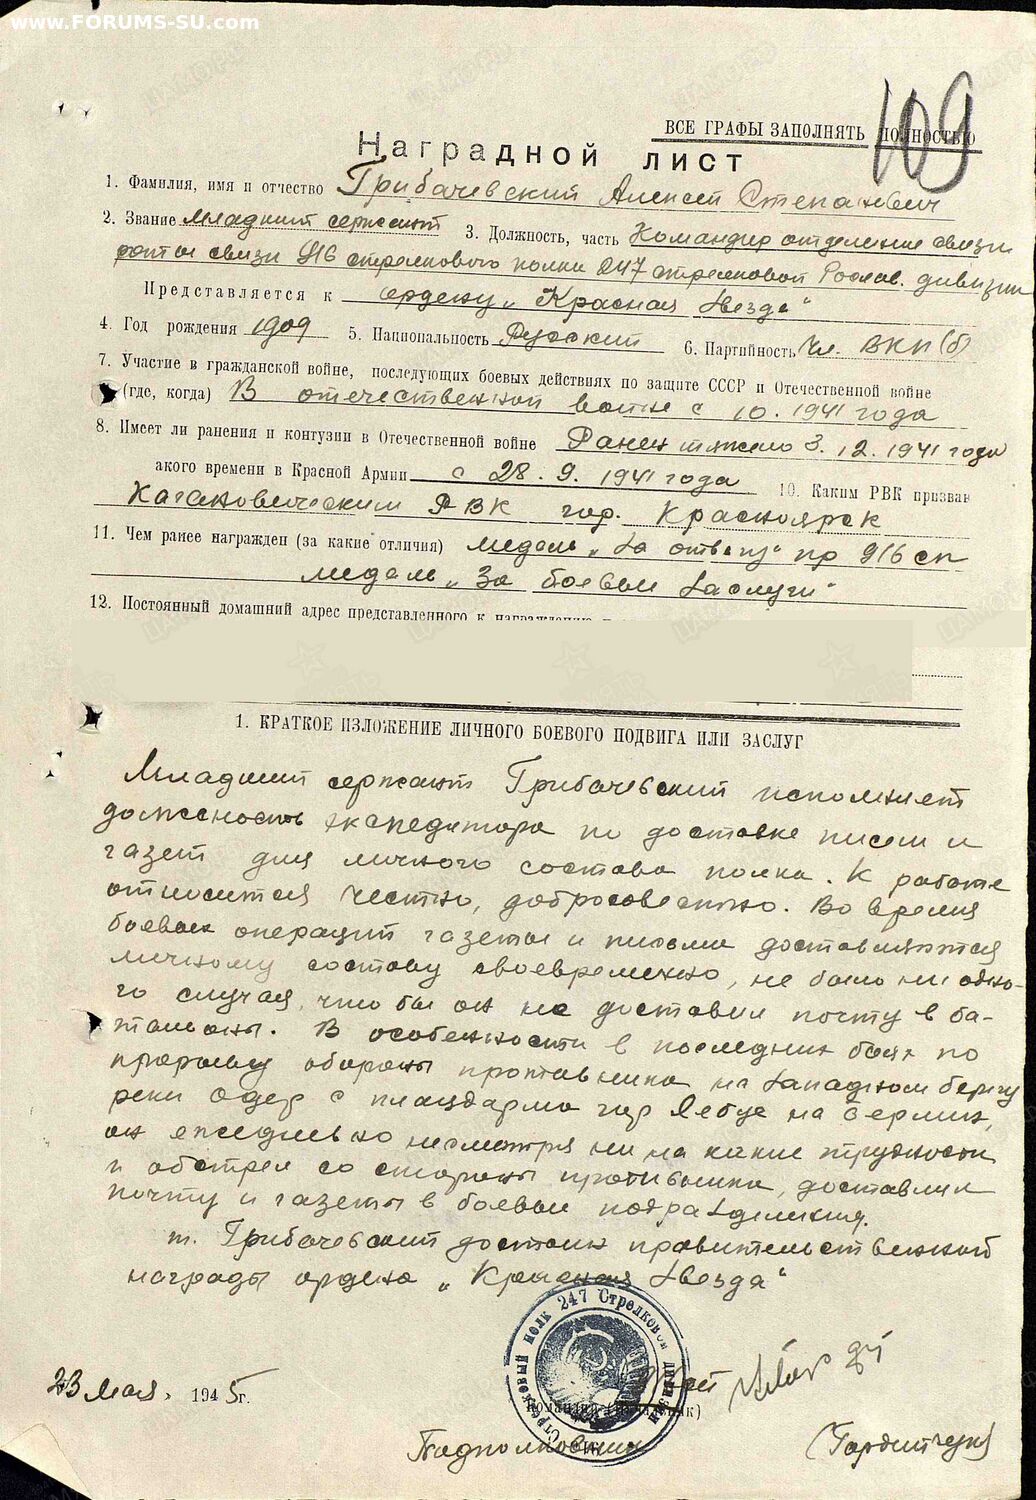 www.FORUMS-SU.com
109
ВСЕ ГРАФЫ ЗАПОЛНЯТЬ ПОЛНОСТЬЮ
Наградной лист
1. Фамилия, имя и отчество Грибачевский Алексей Степанович
2. Звание младший сержант 3. Должность, часть Командир отделение связи
роты связи 916 стрелкового полка 247 стрелковой Рослав. дивизии
Представляется к ордену „Красная Звезда"
4. Год рождения 1909 5. Национальность Русский 6. Партийность Чл. ВКП(б)
7. Участие в гражданской войне, последующих боевых действиях по защите СССР и Отечественной войне
(где, когда) В отечественной войне с 10.1941 года
8. Имеет ли ранения и контузии в Отечественной войне Ранен тяжело 3.12.1941 года
акого времени в Красной Армии с 28.9.1941 года 10. Каким РВК призван
Кагановическим РВК гор. Красноярск
11. Чем ранее награжден (за какие отличия) медаль „За отвагу" пр 916 сп
медаль „За боевые заслуги"
12. Постоянный домашний адрес представленного к награждению
1. КРАТКОЕ ИЗЛОЖЕНИЕ ЛИЧНОГО БОЕВОГО ПОДВИГА ИЛИ ЗАСЛУГ
Младший сержант Грибачевский исполняет
должность экспедитора по доставке писем и
газет для личного состава полка. К работе
относится честно, добросовестно. Во время
боевых операций газеты и письма доставляются
личному составу своевременно, не было ни одно-
го случая, чтобы он не доставил почту в ба-
тальоны. В особенности в последних боях по
прорыву обороны противника на западном берегу
реки Одер с плацдарма гор Лебус на Берлин,
он ежедневно несмотря ни на какие трудности
и обстрел со стороны противника, доставлял
почту и газеты в боевые подразделения.
т. Грибачевский достоин правительственной
награды ордена „Красная Звезда"
247 Стрелковой дивизии
Стрелковый полк
23 Мая 1945г.
Командир (начальник)
Подполковник